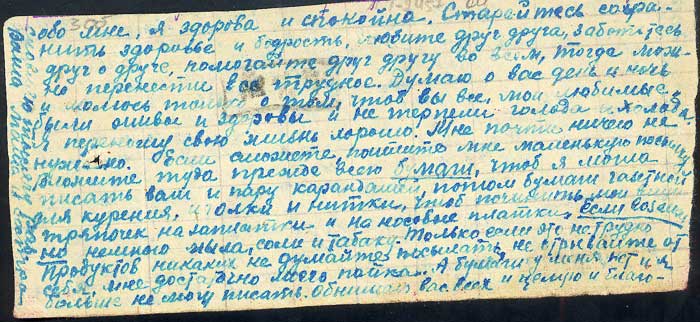 обо мне, я здорова и спокойна. Старайтесь сохра-
нить здоровье и бодрость, любите друг друга, заботьтесь
друг о друге, помогайте друг другу во всем, тогда мож-
но перенести все трудное. Думаю о вас день и ночь
и молюсь только о том, чтоб вы все, мои любимые,
были живы и здоровы и не терпели голода и холода.
Я переношу свою жизнь хорошо. Мне почти ничего не
нужно. Если сможете, пошлите мне маленькую посылку
вложите туда прежде всего бумаги, чтоб я могла
писать вам и пару карандашей, потом бумаги газетной
для курения, иголки и нитки, чтоб починить мои
тряпочек на заплатки и на носовые платки, если возмож
но немного мыла, соли и табаку. Только если это не трудно
Продуктов никаких не думайте посылать, не отрывайте от
себя, мне достаточно моего пайка. А бумаги у меня нет и я
больше не могу писать. Обнимаю вас всех и целую и благо-